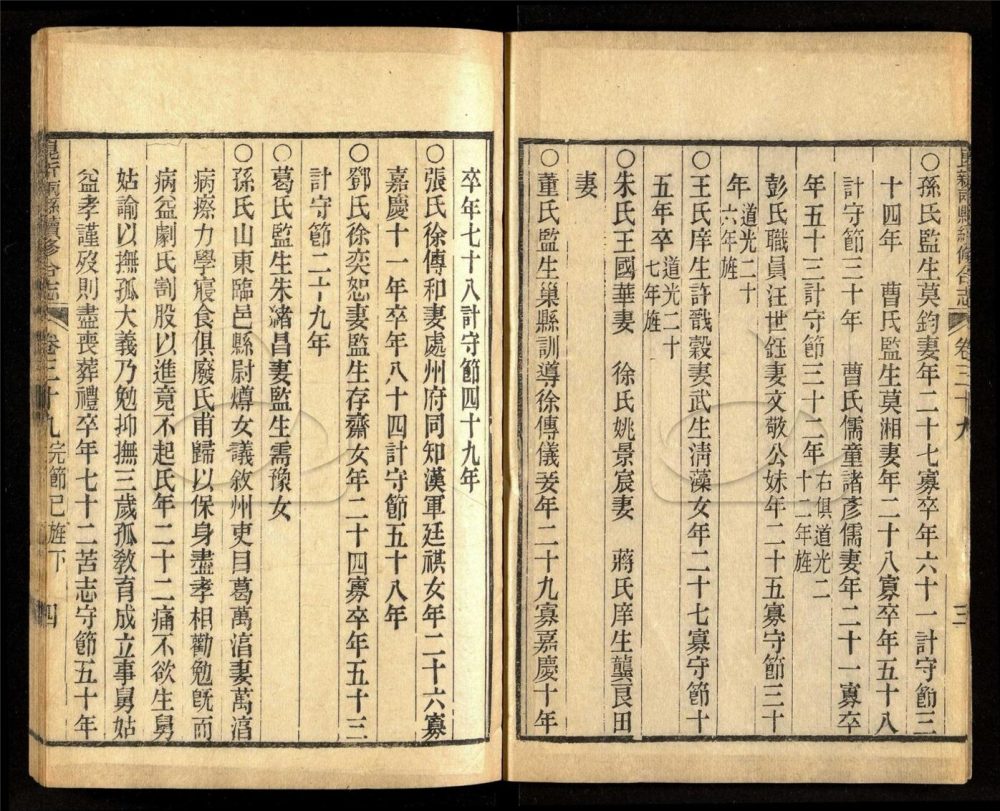 ○孫氏監生莫鈞妻年二十七寡卒年六十一計守節三
十四年　曹氏監生莫湘妻年二十八寡卒年五十八
計守節三十年　曹氏儒童諸彥儒妻年二十一寡卒
年五十三計守節三十二年右俱道光二十二年旌
彭氏職員汪世鈺妻文敬公妹年二十五寡守節三十
年道光二十六年旌
○王氏庠生許戩穀妻武生淸藻女年二十七寡守節十
五年卒道光二十七年旌
○朱氏王國華妻　徐氏姚景宸妻　蔣氏庠生龔艮田
妻
○董氏監生巢縣訓導徐傳儀妾年二十九寡嘉慶十年
三
卒年七十八計守節四十九年
○張氏徐傳和妻處州府同知漢軍廷祺女年二十六寡
嘉慶十一年卒年八十四計守節五十八年
○鄧氏徐奕恕妻監生存齋女年二十四寡卒年五十三
計守節二十九年
○葛氏監生朱緒昌妻監生需豫女
○孫氏山東臨邑縣尉燇女議敘州吏目葛萬涽妻萬涽
病瘵力學寢食俱廢氏甫歸以保身盡孝相勸勉旣而
病益劇氏割股以進竟不起氏年二十二痛不欲生舅
姑諭以撫孤大義乃勉抑撫三歲孤敎育成立事舅姑
益孝謹歿則盡喪葬禮卒年七十二苦志守節五十年
崑新兩縣續修合志　卷三十九　完節已旌下　四